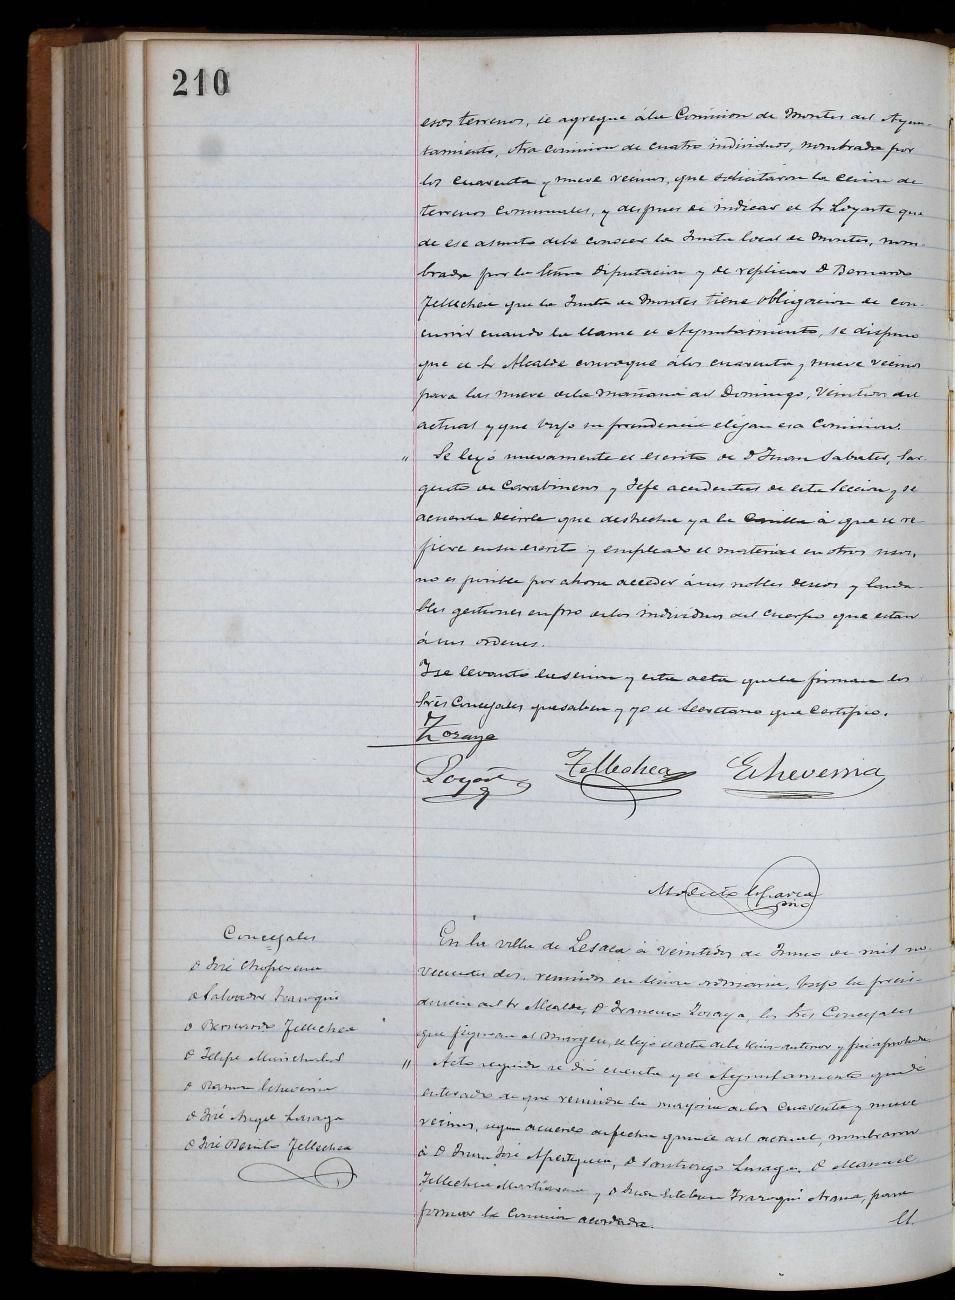 210
esos terrenos, se agregue á la Comision de Montes del Ayun-
tamiento, otra comision de cuatro individuos, nombrada por
los cuarenta y nueve vecinos, que solicitaron la cesion de
terrenos comunales, y despues de indicar el Sr Loyarte que
de ese asunto debe conocer la Junta local de Montes, nom-
brada por la Diputacion y de replicar D Bernardo
Tellechea que la Junta de Montes tiene obligacion de con-
currir cuando la llame el Ayuntamiento, se dispuso
que el Sr Alcalde convoque á los cuarenta y nueve vecinos
para las nueve de la mañana del Domingo, veintidos del
actual y que bajo su presidencia elijan esa Comision.
" Se leyó nuevamente el escrito de D Juan Sabater, Sar-
gento de Carabineros y Jefe accidental de esta Seccion y se
acuerda decirle que deshecha ya la á que se re-
fiere en su escrito y empleado el material en otros usos,
no es posible por ahora acceder á sus nobles deseos y lauda-
bles gestiones en pro de los individuos del Cuerpo que estan
á sus ordenes.
Y se levantó la sesion y esta acta que la firman los
Sres Concejales que saben y yo el Secretario que certifico.
Zozaya
Loyarte Tellechea Echeverria
Modesto
Concejales
D José
D Salvador Irazoqui
D Bernardo Tellechea
D Felipe Marichalar
D Ramon Echeverria
D José Angel Lasaga
D José Benito Tellechea
En la villa de Lesaca á veintidos de Junio de mil no-
vecientos dos, reunidos en sesion ordinaria, bajo la presi-
dencia del Sr Alcalde, D Francisco Zozaya, los Sres Concejales
que figuran al margen, se leyó el acta de la sesion anterior y fué aprobada.
" Acto seguido se dió cuenta y el Ayuntamiento quedó
enterado de que reunida la mayoria de los cuarenta y nueve
vecinos, segun acuerdo de fecha quince del actual, nombraron
á D Juan José Apesteguia, D Santiago Lasaga, D Manuel
Tellechea y D Juan Esteban Irazoqui , para
formar la Comision acordada.